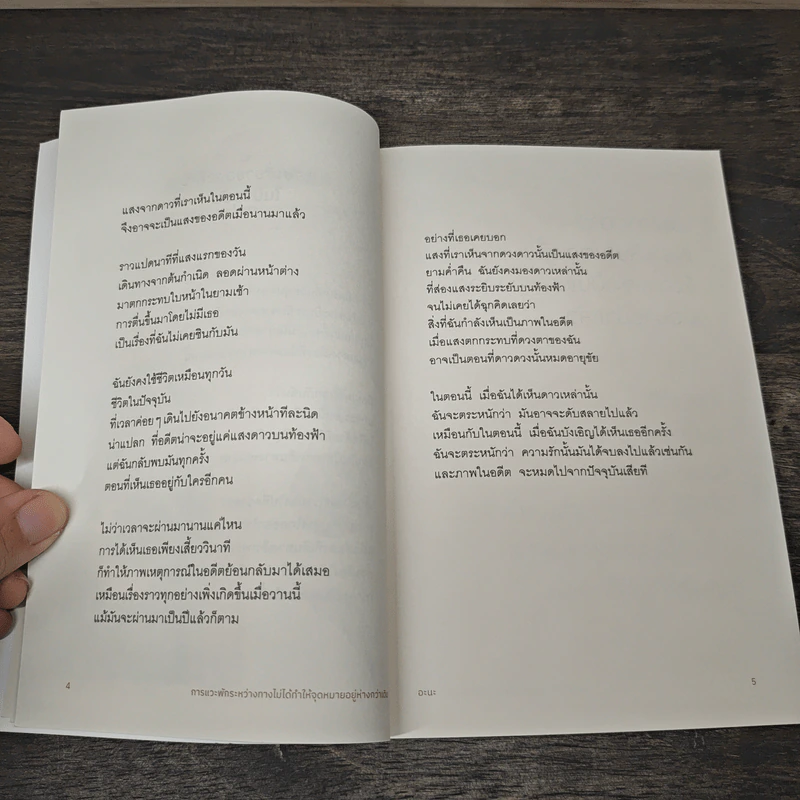 แสงจากดาวที่เราเห็นในตอนนี้
จึงอาจจะเป็นแสงของอดีตเมื่อนานมาแล้ว
ราวแปดนาทีที่แสงแรกของวัน
เดินทางจากต้นกำเนิด ลอดผ่านหน้าต่าง
มาตกกระทบใบหน้าในยามเช้า
การตื่นขึ้นมาโดยไม่มีเธอ
เป็นเรื่องที่ฉันไม่เคยชินกับมัน
ฉันยังคงใช้ชีวิตเหมือนทุกวัน
ชีวิตในปัจจุบัน
ที่เวลาค่อยๆ เดินไปยังอนาคตข้างหน้าทีละนิด
น่าแปลก ที่อดีตน่าจะอยู่แค่แสงดาวบนท้องฟ้า
แต่ฉันกลับพบมันทุกครั้ง
ตอนที่เห็นเธออยู่กับใครอีกคน
ไม่ว่าเวลาจะผ่านมานานแค่ไหน
การได้เห็นเธอเพียงเสี้ยววินาที
ก็ทำให้ภาพเหตุการณ์ในอดีตย้อนกลับมาได้เสมอ
เหมือนเรื่องราวทุกอย่างเพิ่งเกิดขึ้นเมื่อวานนี้
แม้มันจะผ่านมาเป็นปีแล้วก็ตาม
4
การแวะพักระหว่างทางไม่ได้ทำให้จุดหมายอยู่ห่างกว่า
อย่างที่เธอเคยบอก
แสงที่เราเห็นจากดวงดาวนั้นเป็นแสงของอดีต
ยามค่ำคืน ฉันยังคงมองดาวเหล่านั้น
ที่ส่องแสงระยิบระยับบนท้องฟ้า
จนไม่เคยได้ฉุกคิดเลยว่า
สิ่งที่ฉันกำลังเห็นเป็นภาพในอดีต
เมื่อแสงตกกระทบที่ดวงตาของฉัน
อาจเป็นตอนที่ดาวดวงนั้นหมดอายุขัย
ในตอนนี้ เมื่อฉันได้เห็นดาวเหล่านั้น
ฉันจะตระหนักว่า มันอาจจะดับสลายไปแล้ว
เหมือนกับในตอนนี้ เมื่อฉันบังเอิญได้เห็นเธออีกครั้ง
ฉันจะตระหนักว่า ความรักนั้นมันได้จบลงไปแล้วเช่นกัน
และภาพในอดีต จะหมดไปจากปัจจุบันเสียที
อะนะ
5